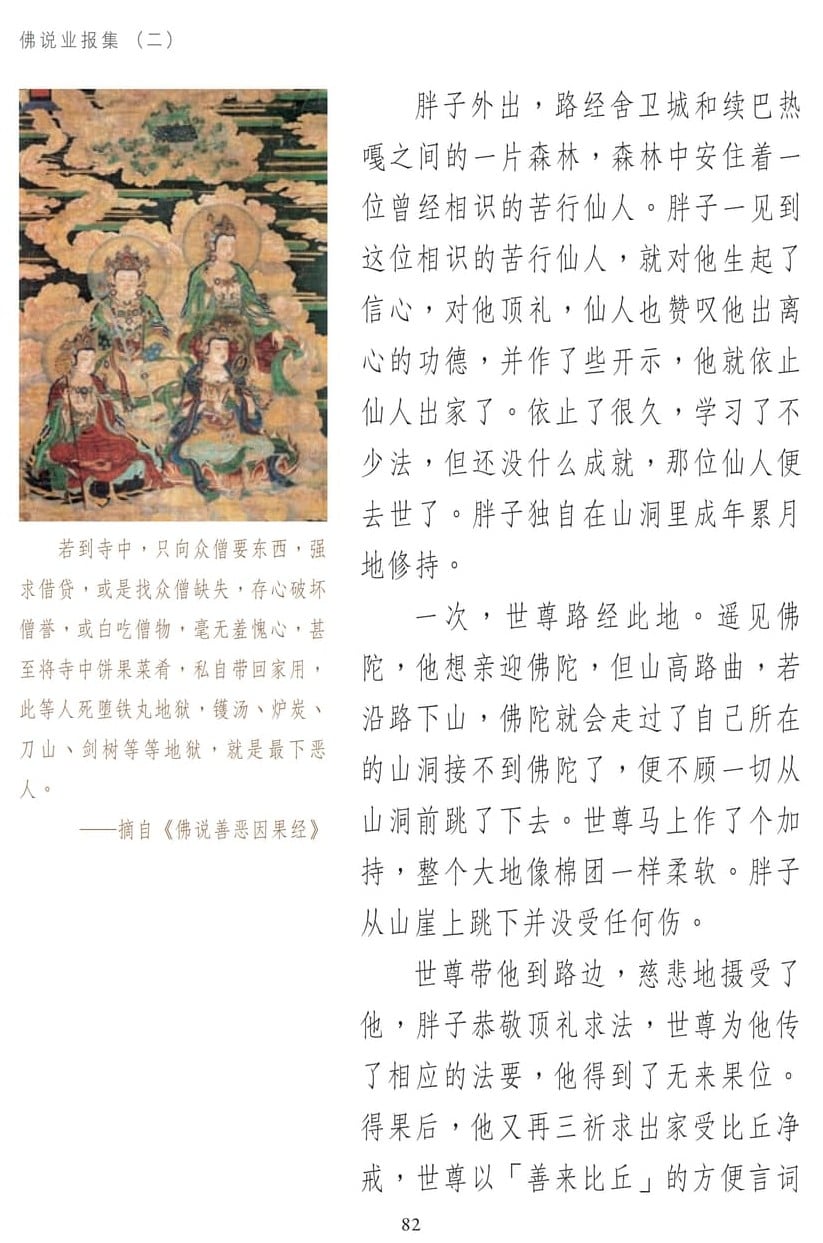 佛说业报集 （二）
若到寺中，只向众僧要东西，强
求借贷，或是找众僧缺失，存心破坏
僧誉，或白吃僧物，毫无羞愧心，甚
至将寺中饼果菜肴，私自带回家用，
此等人死堕铁丸地狱，镬汤、炉炭、
刀山、剑树等等地狱，就是最下恶
人。
——摘自《佛说善恶因果经》
胖子外出，路经舍卫城和续巴热
嘎之间的一片森林，森林中安住着一
位曾经相识的苦行仙人。胖子一见到
这位相识的苦行仙人，就对他生起了
信心，对他顶礼，仙人也赞叹他出离
心的功德，并作了些开示，他就依止
仙人出家了。依止了很久，学习了不
少法，但还没什么成就，那位仙人便
去世了。胖子独自在山洞里成年累月
地修持。
一次，世尊路经此地。遥见佛
陀，他想亲迎佛陀，但山高路曲，若
沿路下山，佛陀就会走过了自己所在
的山洞接不到佛陀了，便不顾一切从
山洞前跳了下去。世尊马上作了个加
持，整个大地像棉团一样柔软。胖子
从山崖上跳下并没受任何伤。
世尊带他到路边，慈悲地摄受了
他，胖子恭敬顶礼求法，世尊为他传
了相应的法要，他得到了无来果位。
得果后，他又再三祈求出家受比丘净
戒，世尊以「善来比丘」的方便言词
82